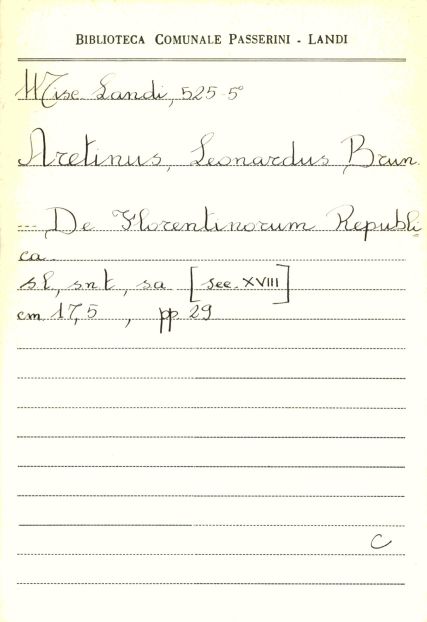 BIBLIOTECA COMUNALE PASSERINI - LANDI
Misc. Landi, 525-5°
Aretinus, Leonardus Brun.
--- De Florentinorum Republi-
ca.
sl, snt, sa [sec. XVIII]
cm 17,5 , pp 29
C